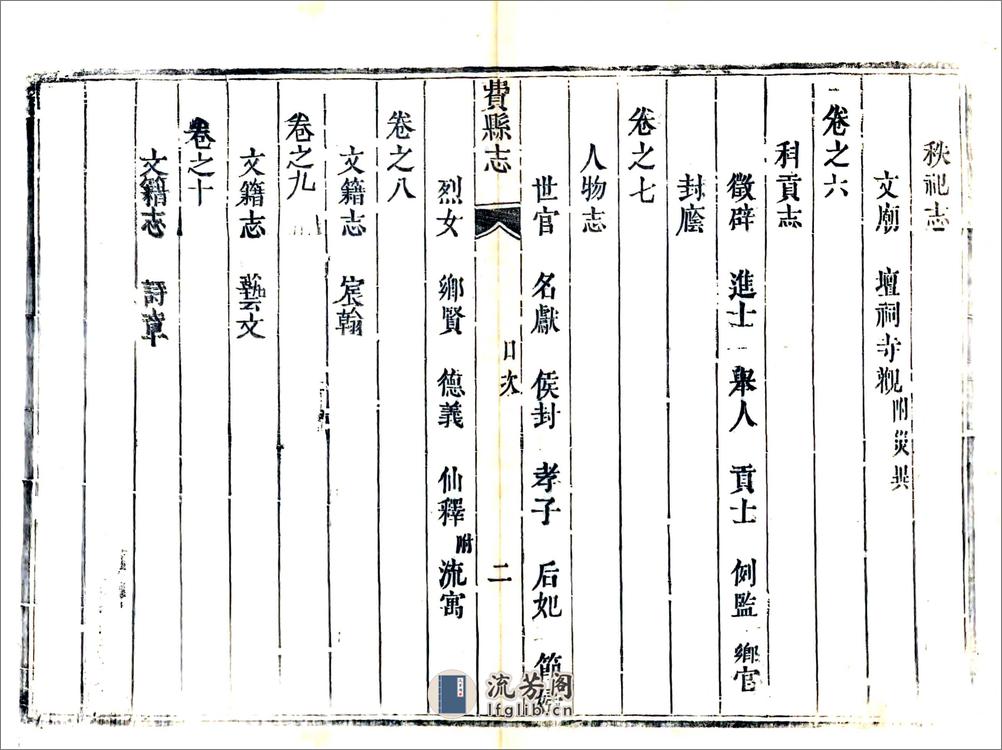 秩祀志
文廟 壇祠寺觀附災異
卷之六
科貢志
徵辟 進士 舉人 貢士 例監 鄉官
封廕
卷之七
人物志
世官 名獻 侯封 孝子 后妃 節婦
費縣志 目次 二
烈女 鄉賢 德義 仙釋 附流寓
卷之八
文籍志 宸翰
卷之九
文籍志 藝文
卷之十
文籍志 詩章
流芳阁
lfglib.cn